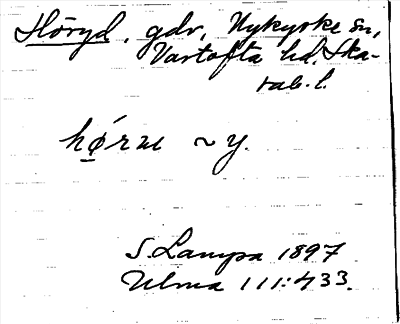 Höryd, gdr, Nykyrke sn,
Vartofta hd. Ska-
rab. l.
hǿræ ~ y.
S. Lampa 1897
Ulma 111:433.